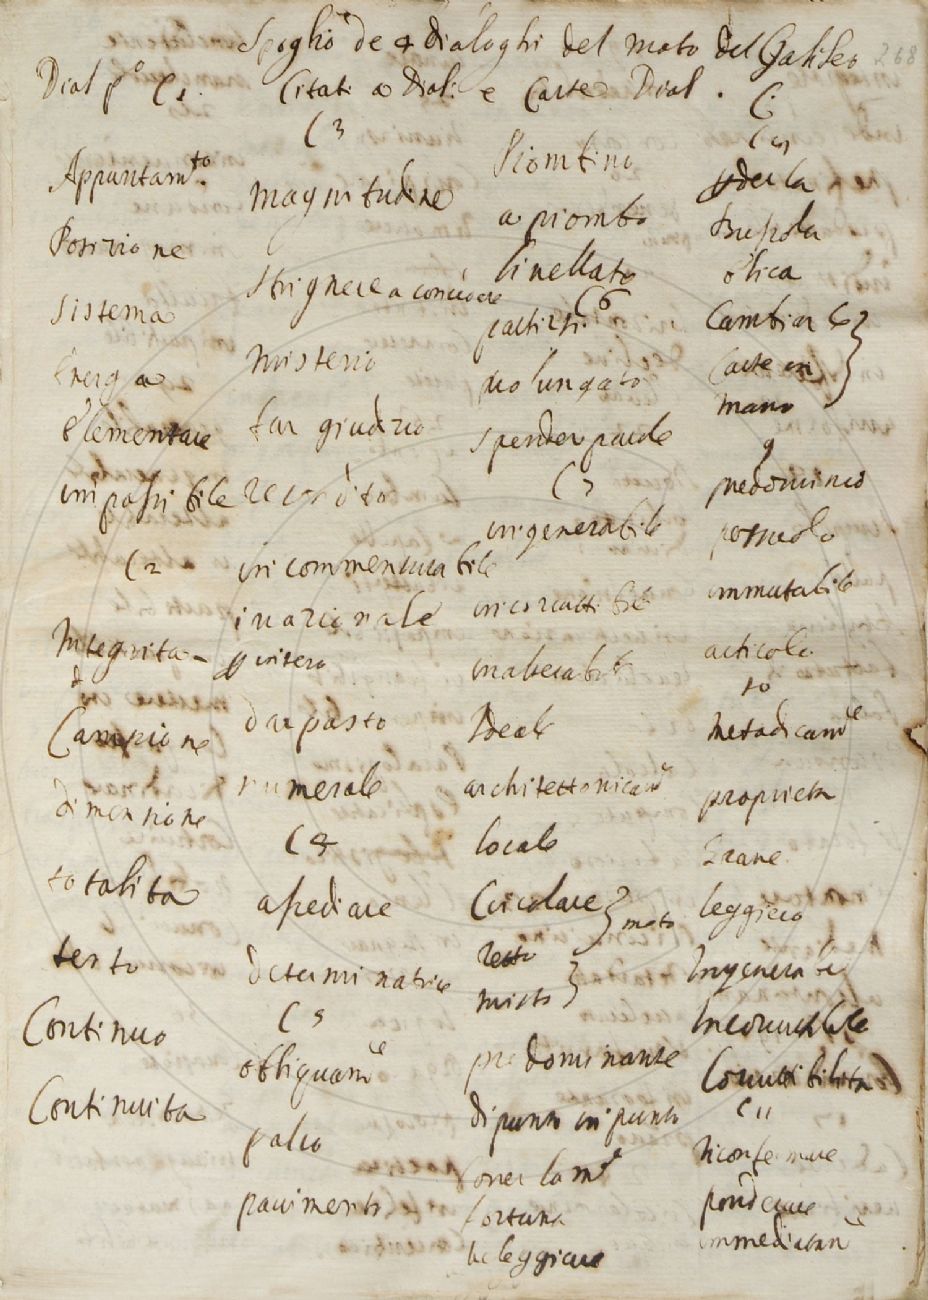 Spoglio de 4 dialoghi del moto del Galileo
268
Dial pº C1.
Citati a Dial: e Carte Dial.
Appuntamto.
Posizione
Sistema
Energia
Elementare
impassibile
C2
Integrità
Campione
dimensione
totalita
testo
Continuo
Continuita
C3
magnitudine
strignere a concedere
misterio
far giudizio
recondito
incommensurabile
irrazionale
dar pasto
numerale
C4
asediare
determinatrice
C5
obliquame
palco
pavimento
Piombino
a piombo
livellato
C6
partirsi
prolungato
spender parole
C7
ingenerabile
incorruttibile
inalterabile
Ideale
architettonicame
locale
Circolare
retto
misto
moto
predominante
di punto in punto
fortuna
C:
perderla
Bussola
elica
Cambiar le
Carte in
mano
9
predominio
immutabile
articolo
10
metodicame
proprieta
Grave
leggiero
Ingenerabile
Incorruttibile
Corruttibilita
C11
Riconfermare
ponderare
immediatame